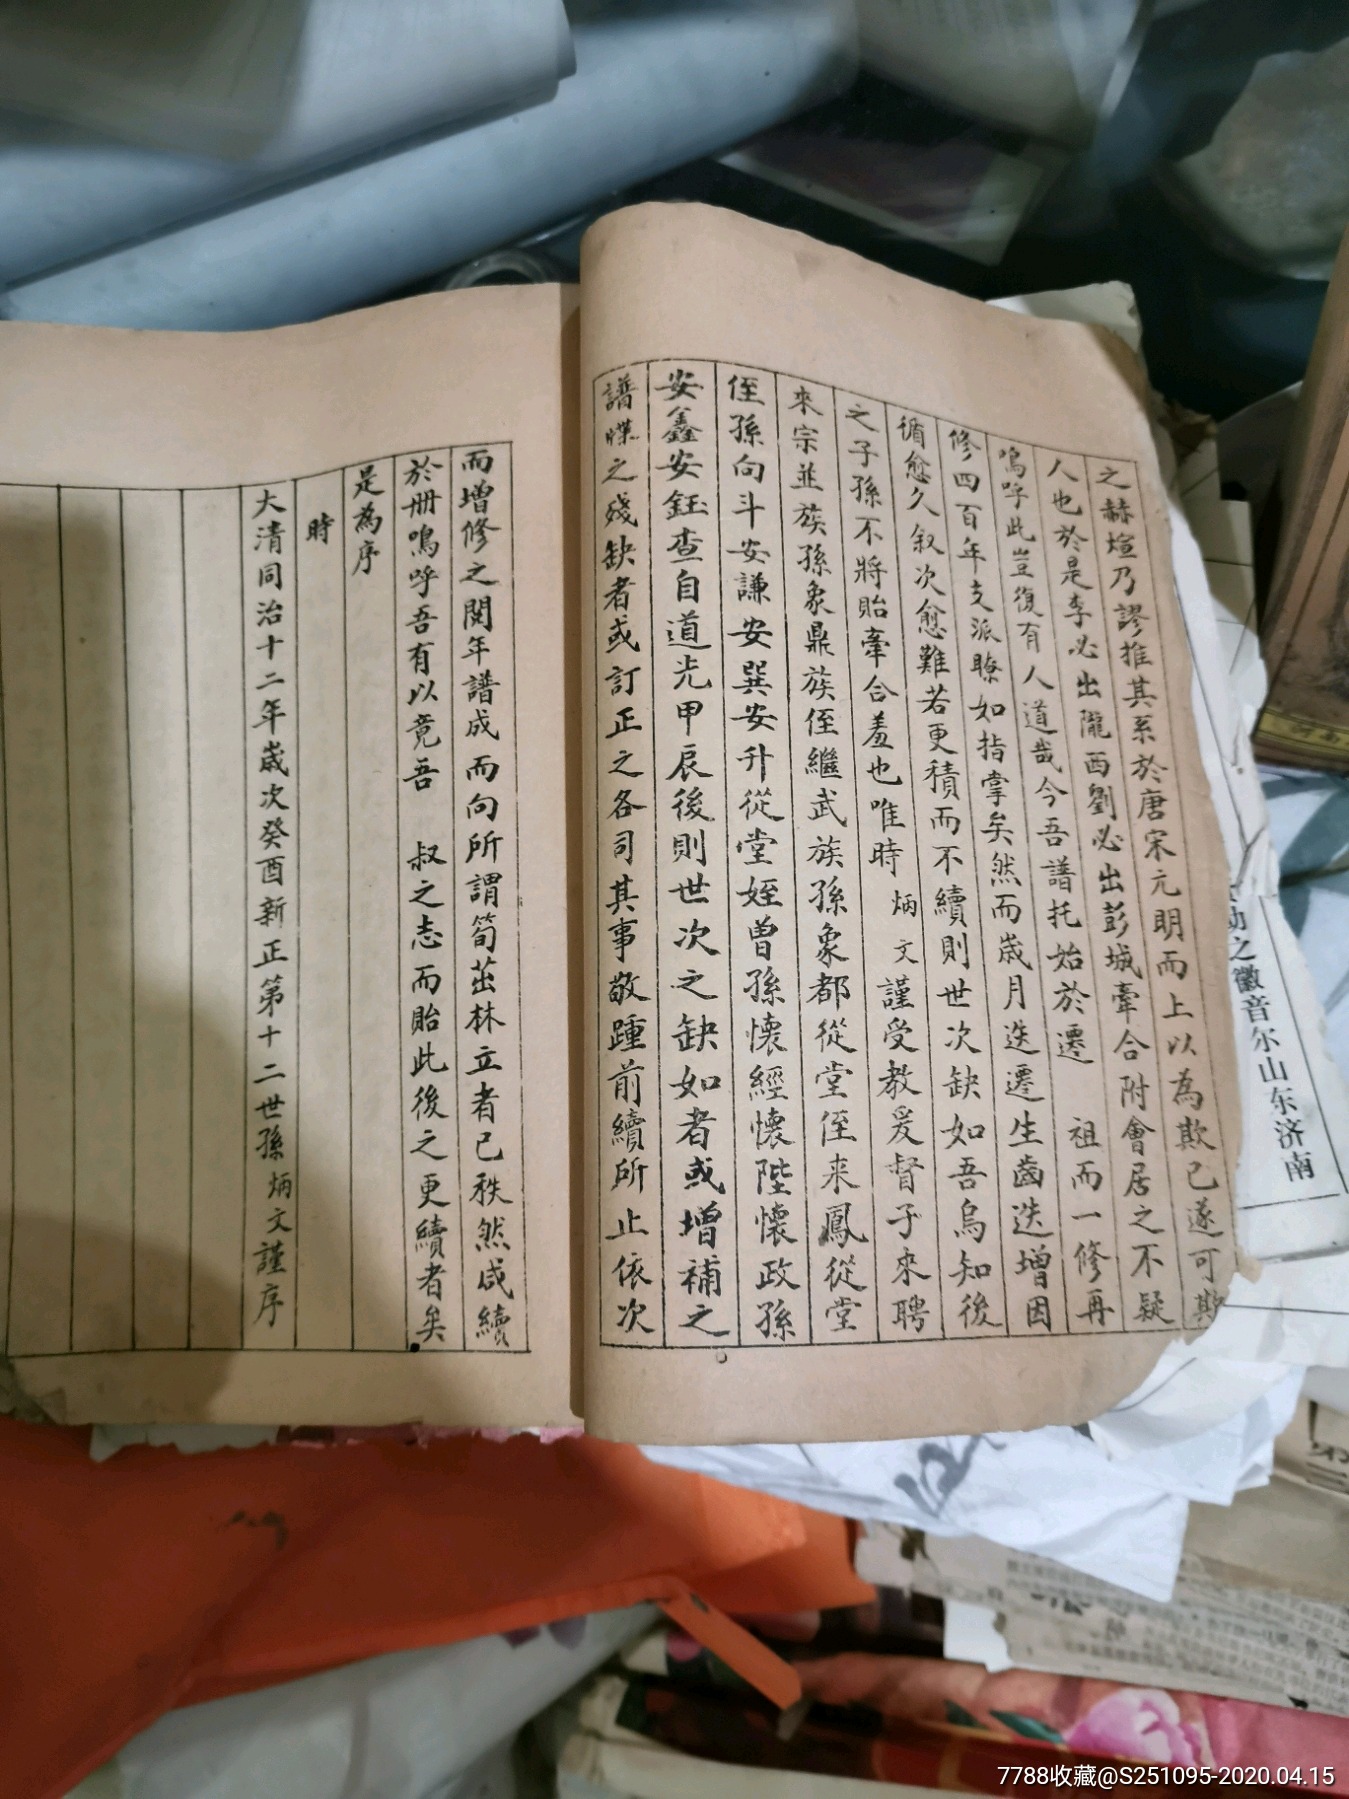 之赫煊乃謬推其系於唐宋元明而上以為欺已遂可欺
人也於是李必出隴西劉必出彭城牽合附會居之不疑
嗚呼此豈復有人道哉今吾譜托始於遷 祖而一修再
修四百年支派瞭如指掌矣然而歲月迭遷生齒迭增因
循愈久叙次愈難若更積而不續則世次缺如吾烏知後
之子孫不將貽牽合羞也唯時炳文謹受教爰督子來聘
來宗並族孫象鼎族侄繼武族孫象都從堂侄来鳳從堂
侄孫向斗安謙安巽安升從堂姪曾孫懷經懷陛懷政孫
安鑫安鈺查自道光甲辰後則世次之缺如者或增補之
譜牒之殘缺者或訂正之各司其事敬踵前續所止依次
而增修之閱年譜成而向所謂筍茁林立者已秩然咸續
於册鳴呼吾有以竟吾 叔之志而貽此後之更續者矣
是為序
時
大清同治十二年歲次癸酉新正第十二世孫炳文謹序
之徽音尔山东济南
河南
7788收藏@S251095-2020.04.15